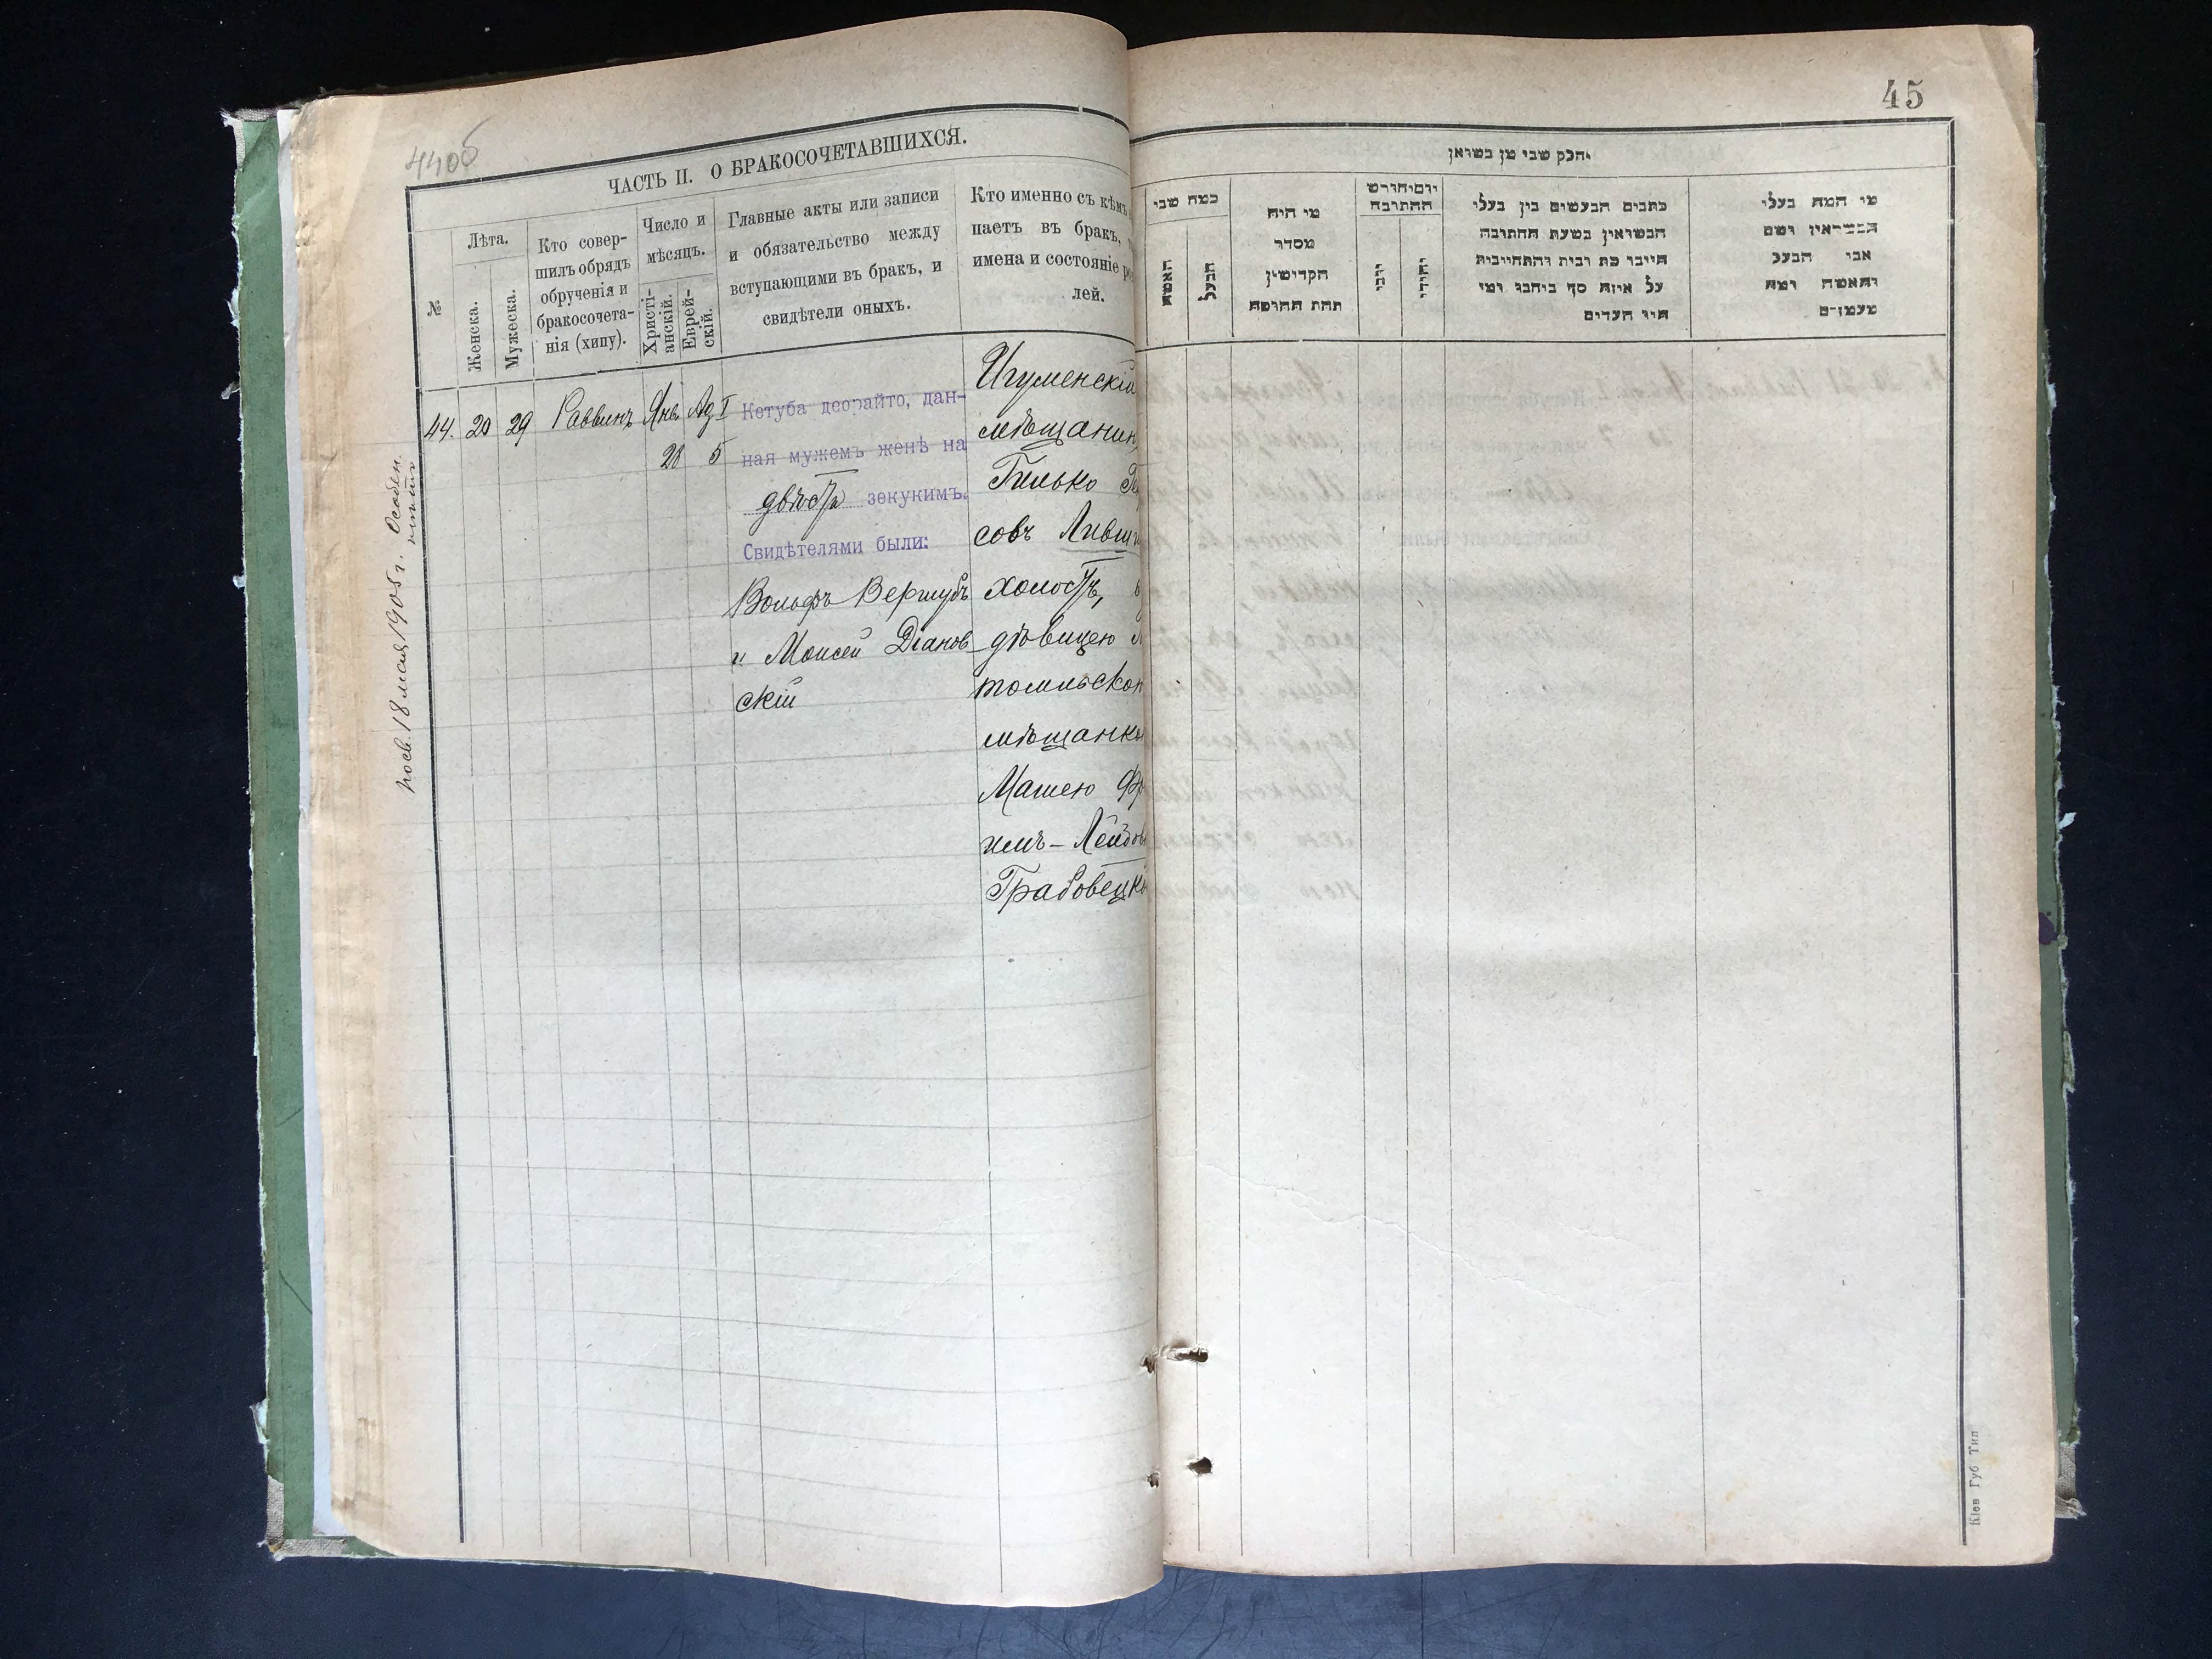 44об
ЧАСТЬ II. О БРАКОСОЧЕТАВШИХСЯ.
№
Лѣта.
Женска.
Мужеска.
Кто совер-
шилъ обрядъ
обрученія и
бракосочета-
нія (хипу).
Число и
мѣсяцъ.
Христі-
анскій.
Еврей-
скій.
Главные акты или записи
и обязательство между
вступающими въ бракъ, и
свидѣтели оныхъ.
Кто именно съ кѣмъ
паетъ въ бракъ,
имена и состояніе ро
лей.
44. 20 29 Раввинъ Янв. Ад I
28 5
Кетуба деорайто, дан-
ная мужемъ женѣ на
двѣсти зекукимъ.
Свидѣтелями были:
Вольфъ Вершубъ
и Моисей Діанов
скій
Игуменскій
мѣщанин
Гилько
совъ Лившиц
холостъ,
дѣвицею
томильскою
мѣщанкою
Машею
имъ-Лейбов
Грабовецко
посв. 18 мая 1905 г. Особен.
45
חלק שני מן נשואין
כמה שני
האשה
הבעל
מי היה
מסדר
הקדישין
תחת החופה
יום וחודש
החתונה
יוני
יהודי
כתבים הנעשים בין בעלי
הנשואין בשעת החתונה
חייבו כת ובית והתחייבות
על איזה סך ביחבו ומי
היו העדים
מי המה בעלי
הנשואין ושם
אבי הבעל
והאשה ומה
מעמדם
Кіев Губ Тип